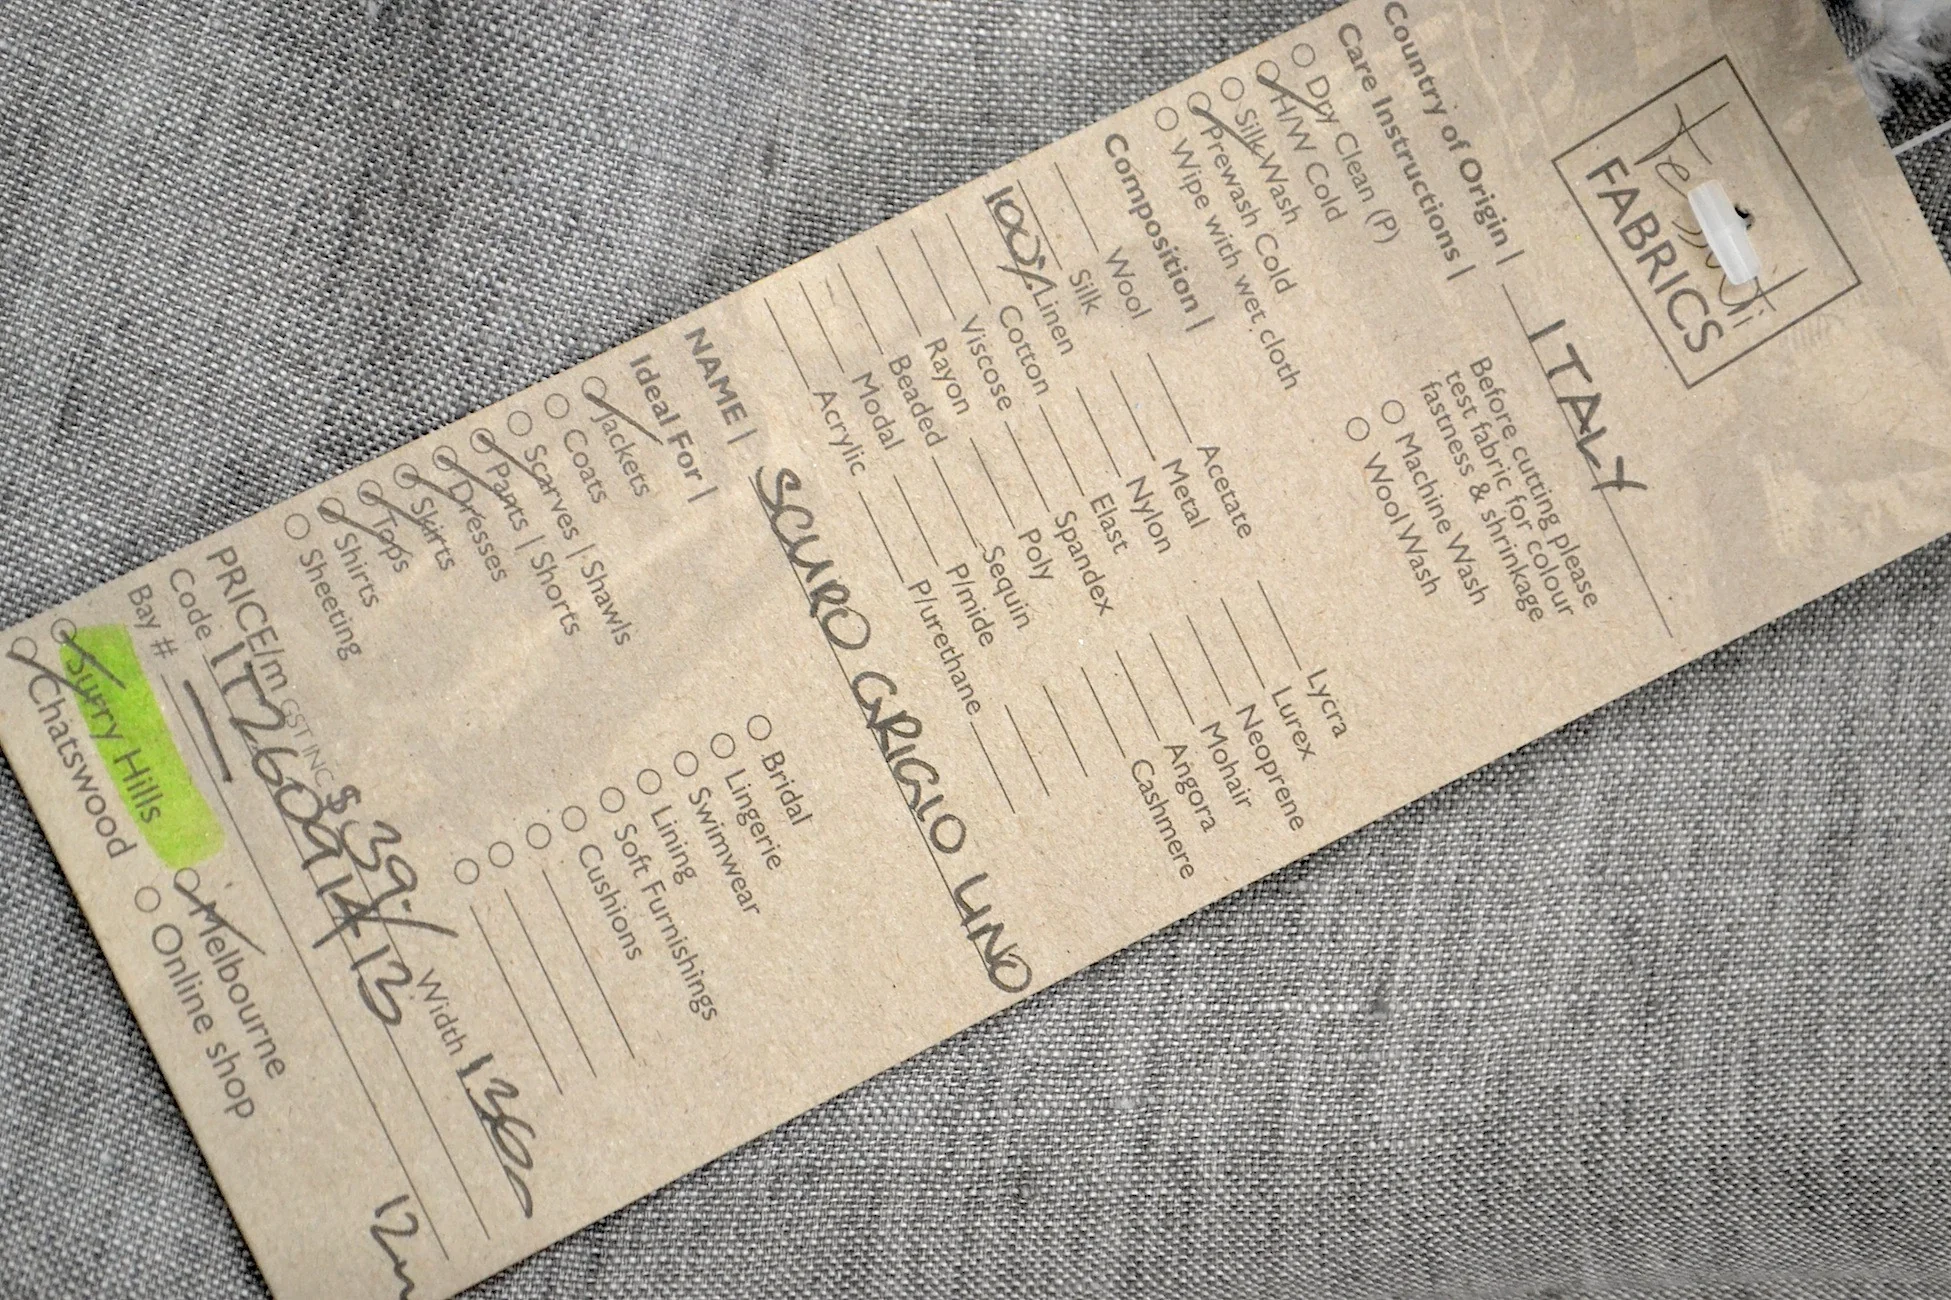 Tessuti
FABRICS
Country of Origin | ITALY
Care Instructions |
Dry Clean (P)
H/W Cold
Silk Wash
Prewash Cold
Wipe with wet cloth
Before cutting please
test fabric for colour
fastness & shrinkage
Machine Wash
Wool Wash
Composition |
Wool
Silk
100% Linen
Cotton
Viscose
Rayon
Beaded
Modal
Acrylic
Acetate
Metal
Nylon
Elast
Spandex
Poly
Sequin
P/mide
P/urethane
Lycra
Lurex
Neoprene
Mohair
Angora
Cashmere
NAME | SCURO GRIGIO LINO
Ideal For |
Jackets
Coats
Scarves | Shawls
Pants | Shorts
Dresses
Skirts
Tops
Shirts
Sheeting
Bridal
Lingerie
Swimwear
Lining
Soft Furnishings
Cushions
PRICE/m GST INC $39.- Width 136
Code IT260914-13
Bay # 12m
Surry Hills
Melbourne
Chatswood
Online shop